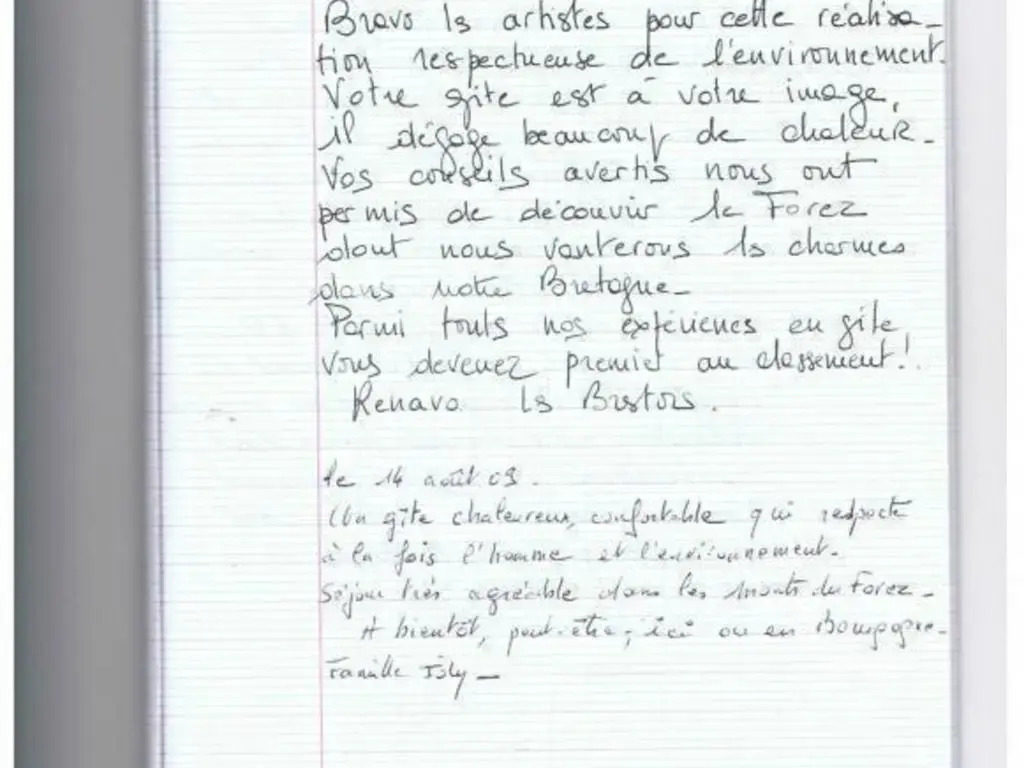 Bravo ls artistes pour cette réalisa-
tion respectueuse de l'environnement.
Votre gîte est à votre image,
il dégage beaucoup de chaleur.
Vos conseils avertis nous ont
permis de découvrir le Forez
dont nous vanterons ls charmes
dans notre Bretagne.
Parmi touts nos expériences en gîte,
vous devenez premier au classement!
Kenavo ls
le 14 août 09.
Un gîte chaleureux, confortable qui respecte
à la fois l'homme et l'environnement.
Séjour très agréable dans les monts du Forez.
A bientôt, peut-être, ici ou en Bourgogne.
Famille